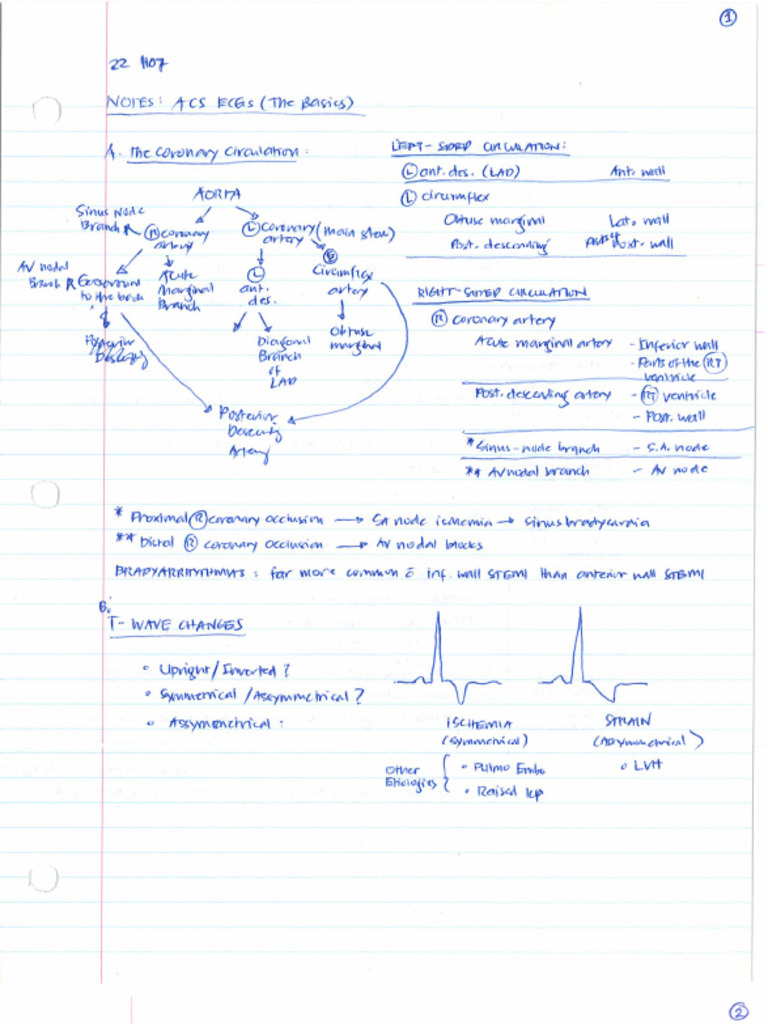 ①
22 1107
NOTES: ACS ECGs (The Basics)
A. The Coronary Circulation:
AORTA
Sinus Node
Branch
Ⓡ coronary
artery
Ⓛ coronary (main stem)
artery
AV nodal
Branch
to the back
Acute
Marginal
Branch
Ⓛ
ant.
des.
Circumflex
artery
Posterior
Descending
Diagonal
Branch
of
LAD
Obtuse
marginal
Posterior
Descending
Artery
LEFT-SIDED CIRCULATION:
Ⓛ ant. des. (LAD) Ant. wall
Ⓛ circumflex
Obtuse marginal Lat. wall
Post. descending Post. wall
RIGHT-SIDED CIRCULATION
Ⓡ coronary artery
Acute marginal artery - Inferior wall
- Parts of the (RT)
ventricle
Post. descending artery - (RT) ventricle
- Post. wall
* Sinus-node branch - S.A. node
** AV nodal branch - AV node
* Proximal Ⓡ coronary occlusion → SA node ischemia → sinus bradycardia
** Distal Ⓡ coronary occlusion → AV nodal blocks
BRADYARRHYTHMIAS: far more common c̄ inf. wall STEMI than anterior wall STEMI
B.
T-WAVE CHANGES
• Upright/Inverted?
• Symmetrical/Assymmetrical?
• Assymenetrical:
ISCHEMIA
(symmetrical)
STRAIN
(Asymmetrical)
Other
Etiologies
• Pulmo Embo
• Raised ICP
• LVH
②